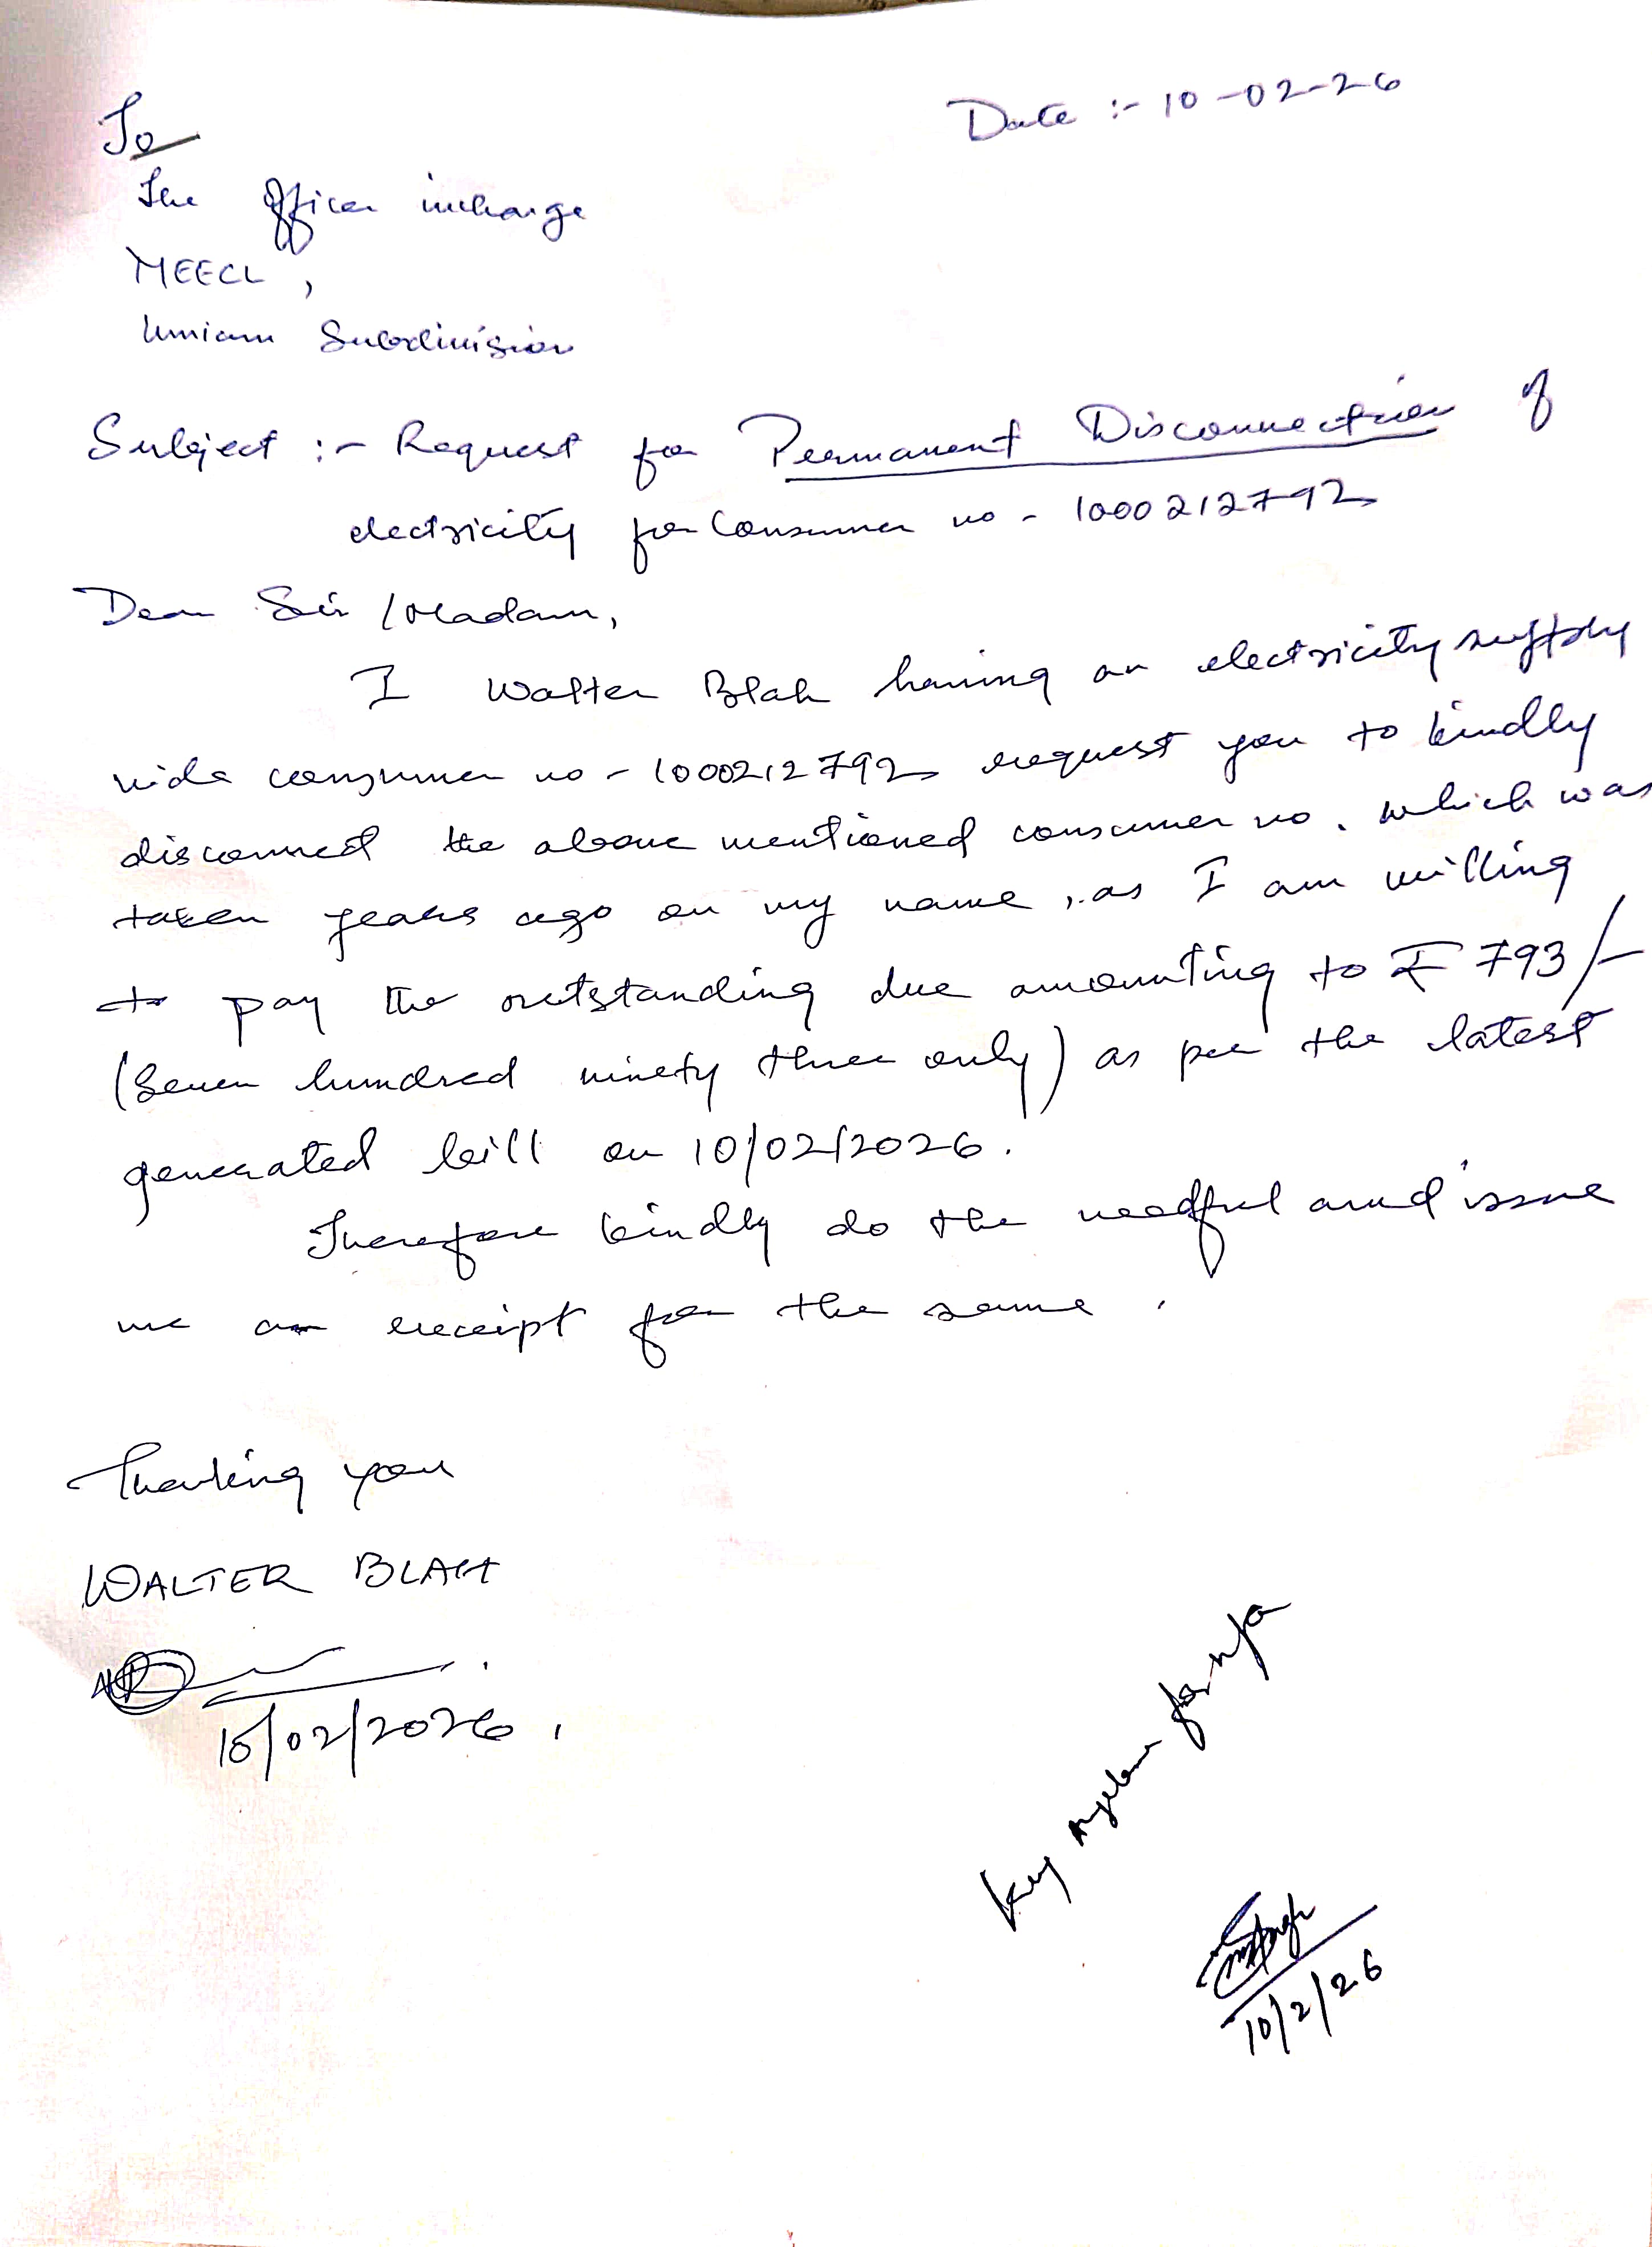 Date :- 10-02-26
To
The Officer incharge
MEECL,
Umiam Subdivision
Subject :- Request for Permanent Disconnection of
electricity for Consumer no - 1000212792
Dear Sir / Madam,
I Walter Blah having an electricity supply
vide consumer no - 1000212792 request you to kindly
disconnect the above mentioned consumer no. which was
taken years ago on my name, as I am willing
to pay the outstanding due amounting to ₹ 793/-
(Seven hundred ninety three only) as per the latest
generated bill on 10/02/2026.
Therefore kindly do the needful and issue
me a receipt for the same.
Thanking you
WALTER BLAH
10/02/2026.
for n/a
10/2/26